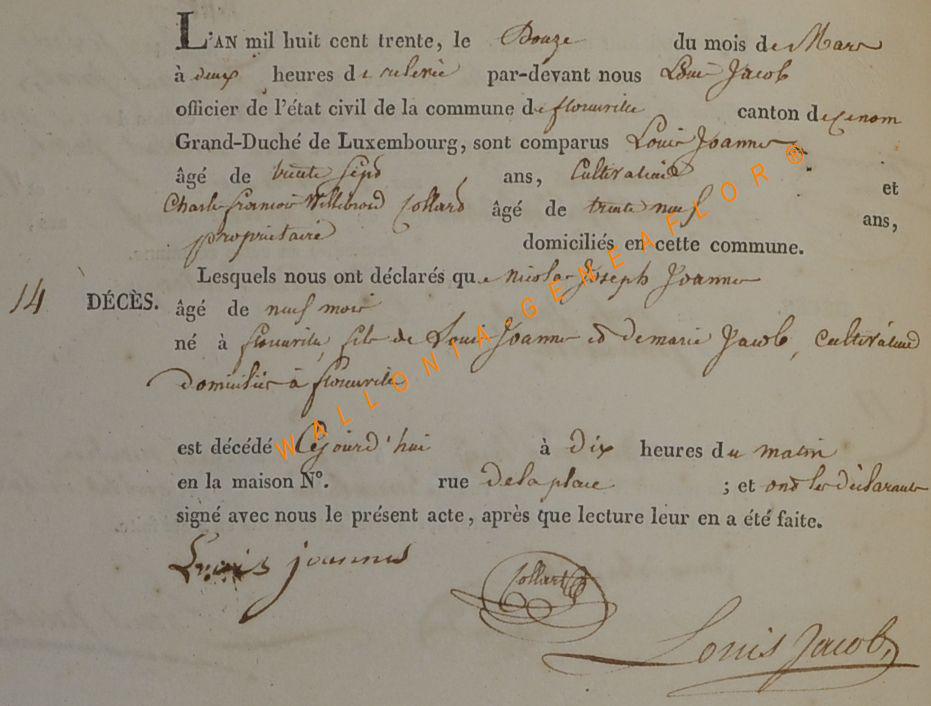 L'AN mil huit cent trente, le Douze du mois de Mars
à deux heures de relevée par-devant nous Louis Jacob
officier de l'état civil de la commune de florenville canton de
Grand-Duché de Luxembourg, sont comparus Louis Joannes
âgé de trente sept ans, Cultivateur et
Charle françois Willibrord Collard âgé de trente neuf ans,
propriétaire domiciliés en cette commune.
Lesquels nous ont déclarés que nicolas Joseph Joannes
14 DÉCÈS. âgé de neuf mois
né à florenville, fils de Louis Joannes et de marie Jacob, cultivateurs
domiciliés à florenville
est décédé Cejourd'hui à dix heures du matin
en la maison N°. rue de la place ; et ont les déclarants
signé avec nous le présent acte, après que lecture leur en a été faite.
Louis joannes
Collart
Louis Jacob,
WALLONIA GENEAFLOR ®